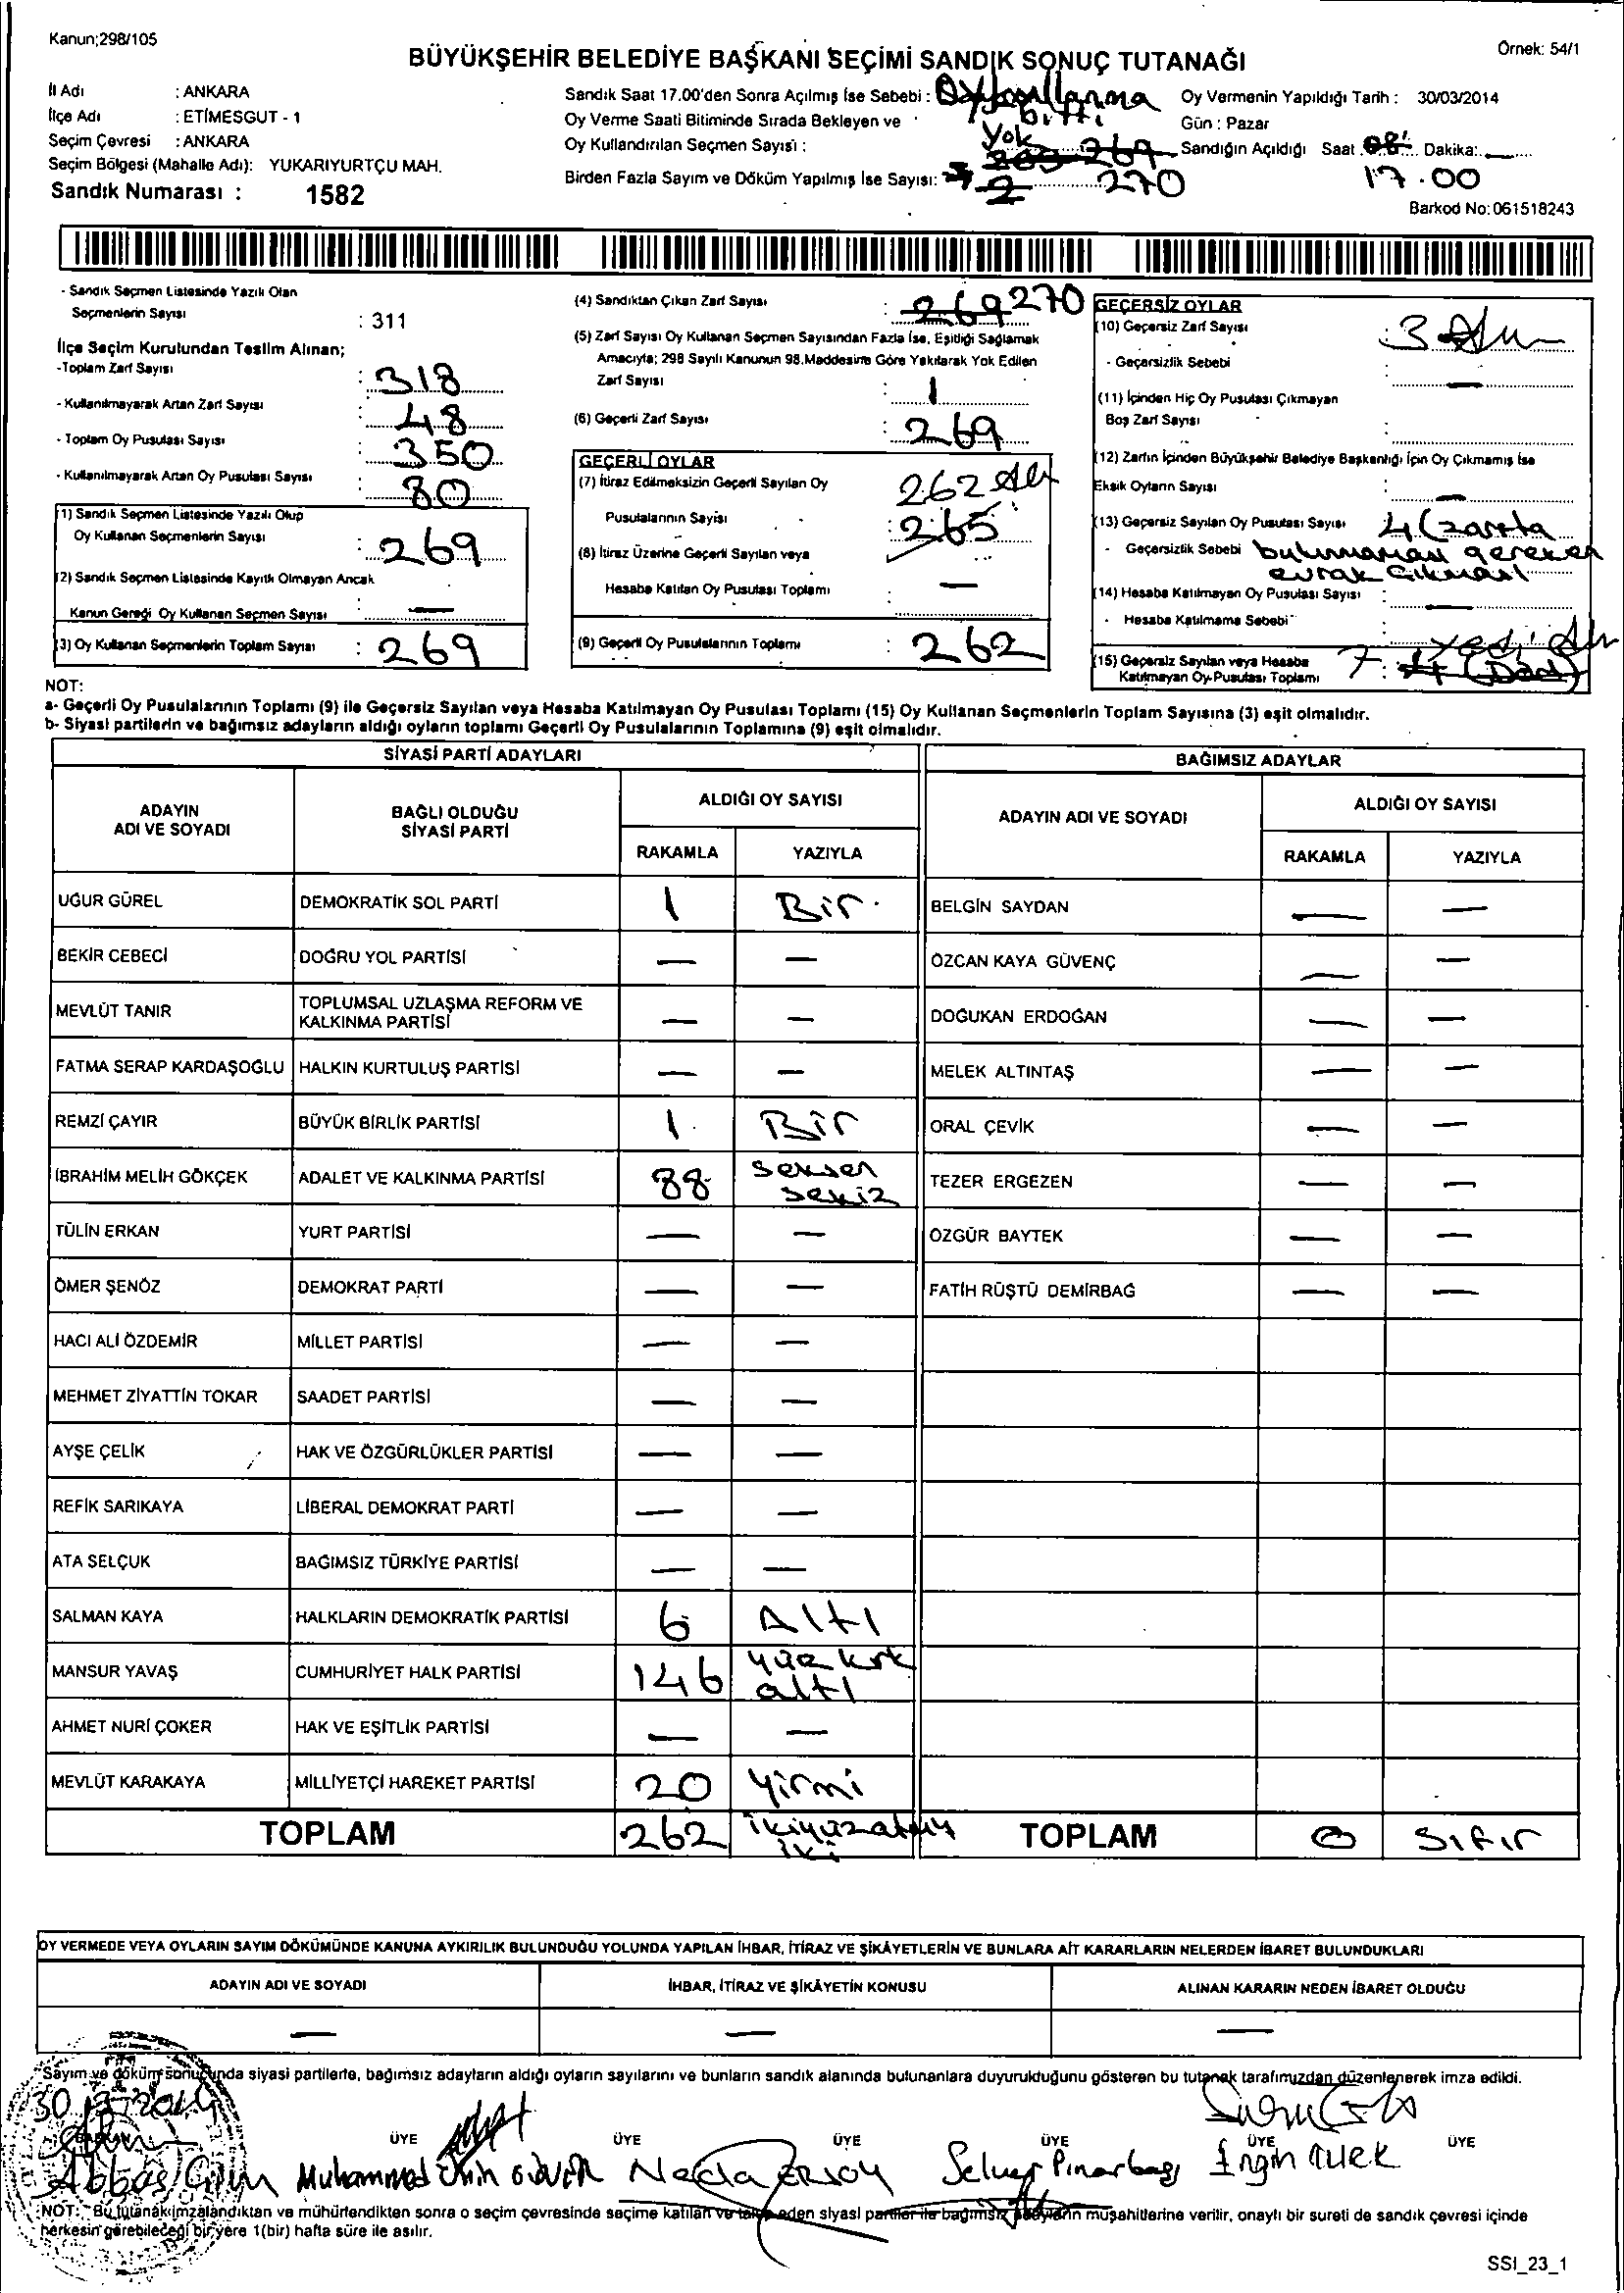 Kanun;298/105
Örnek: 54/1
BÜYÜKŞEHİR BELEDİYE BAŞKANI SEÇİMİ SANDIK SONUÇ TUTANAĞI
İl Adı : ANKARA
İlçe Adı : ETİMESGUT - 1
Seçim Çevresi : ANKARA
Seçim Bölgesi (Mahalle Adı): YUKARIYURTÇU MAH.
Sandık Numarası : 1582
Sandık Saat 17.00'den Sonra Açılmış İse Sebebi :
bitti
Oy Verme Saati Bitiminde Sırada Bekleyen ve
Oy Kullandırılan Seçmen Sayısı : Yok
269
Birden Fazla Sayım ve Döküm Yapılmış İse Sayısı: 2 270
Oy Vermenin Yapıldığı Tarih : 30/03/2014
Gün : Pazar
Sandığın Açıldığı Saat 08 Dakika:
17.00
Barkod No:061518243
- Sandık Seçmen Listesinde Yazılı Olan
Seçmenlerin Sayısı : 311
İlçe Seçim Kurulundan Teslim Alınan;
-Toplam Zarf Sayısı : 318
- Kullanılmayarak Artan Zarf Sayısı : 48
- Toplam Oy Pusulası Sayısı : 350
- Kullanılmayarak Artan Oy Pusulası Sayısı : 80
(1) Sandık Seçmen Listesinde Yazılı Olup
Oy Kullanan Seçmenlerin Sayısı : 269
(2) Sandık Seçmen Listesinde Kayıtlı Olmayan Ancak
Kanun Gereği Oy Kullanan Seçmen Sayısı : —
(3) Oy Kullanan Seçmenlerin Toplam Sayısı : 269
(4) Sandıktan Çıkan Zarf Sayısı : 269 270
(5) Zarf Sayısı Oy Kullanan Seçmen Sayısından Fazla İse, Eşitliği Sağlamak
Amacıyla; 298 Sayılı Kanunun 98.Maddesine Göre Yakılarak Yok Edilen
Zarf Sayısı : 1
(6) Geçerli Zarf Sayısı : 269
GEÇERLİ OYLAR
(7) İtiraz Edilmeksizin Geçerli Sayılan Oy 262
Pusulalarının Sayısı : 265
(8) İtiraz Üzerine Geçerli Sayılan veya
Hesaba Katılan Oy Pusulası Toplamı —
(9) Geçerli Oy Pusulalarının Toplamı : 262
GEÇERSİZ OYLAR
(10) Geçersiz Zarf Sayısı : 3
- Geçersizlik Sebebi : —
(11) İçinden Hiç Oy Pusulası Çıkmayan
Boş Zarf Sayısı :
(12) Zarfın İçinden Büyükşehir Belediye Başkanlığı İçin Oy Çıkmamış İse
Eksik Oyların Sayısı : —
(13) Geçersiz Sayılan Oy Pusulası Sayısı 4 (zarfta
- Geçersizlik Sebebi bulunmaması gereken
evrak çıkması
(14) Hesaba Katılmayan Oy Pusulası Sayısı : —
- Hesaba Katılmama Sebebi :
yedi
(15) Geçersiz Sayılan veya Hesaba
Katılmayan Oy Pusulası Toplamı 7 : 4 (Dört)
NOT:
a- Geçerli Oy Pusulalarının Toplamı (9) ile Geçersiz Sayılan veya Hesaba Katılmayan Oy Pusulası Toplamı (15) Oy Kullanan Seçmenlerin Toplam Sayısına (3) eşit olmalıdır.
b- Siyasi partilerin ve bağımsız adayların aldığı oyların toplamı Geçerli Oy Pusulalarının Toplamına (9) eşit olmalıdır.
SİYASİ PARTİ ADAYLARI
BAĞIMSIZ ADAYLAR
ADAYIN
ADI VE SOYADI
BAĞLI OLDUĞU
SİYASİ PARTİ
ALDIĞI OY SAYISI
RAKAMLA YAZIYLA
ADAYIN ADI VE SOYADI
ALDIĞI OY SAYISI
RAKAMLA YAZIYLA
UĞUR GÜREL DEMOKRATİK SOL PARTİ 1 Bir BELGİN SAYDAN — —
BEKİR CEBECİ DOĞRU YOL PARTİSİ — — ÖZCAN KAYA GÜVENÇ — —
MEVLÜT TANIR TOPLUMSAL UZLAŞMA REFORM VE
KALKINMA PARTİSİ — — DOĞUKAN ERDOĞAN — —
FATMA SERAP KARDAŞOĞLU HALKIN KURTULUŞ PARTİSİ — — MELEK ALTINTAŞ — —
REMZİ ÇAYIR BÜYÜK BİRLİK PARTİSİ 1 Bir ORAL ÇEVİK — —
İBRAHİM MELİH GÖKÇEK ADALET VE KALKINMA PARTİSİ 88 seksen
sekiz TEZER ERGEZEN — —
TÜLİN ERKAN YURT PARTİSİ — — ÖZGÜR BAYTEK — —
ÖMER ŞENÖZ DEMOKRAT PARTİ — — FATİH RÜŞTÜ DEMİRBAĞ — —
HACI ALİ ÖZDEMİR MİLLET PARTİSİ — —
MEHMET ZİYATTİN TOKAR SAADET PARTİSİ — —
AYŞE ÇELİK HAK VE ÖZGÜRLÜKLER PARTİSİ — —
REFİK SARIKAYA LİBERAL DEMOKRAT PARTİ — —
ATA SELÇUK BAĞIMSIZ TÜRKİYE PARTİSİ — —
SALMAN KAYA HALKLARIN DEMOKRATİK PARTİSİ 6 Altı
MANSUR YAVAŞ CUMHURİYET HALK PARTİSİ 146 yüz kırk
altı
AHMET NURİ ÇOKER HAK VE EŞİTLİK PARTİSİ — —
MEVLÜT KARAKAYA MİLLİYETÇİ HAREKET PARTİSİ 20 Yirmi
TOPLAM 262 ikiyüzaltmış
iki TOPLAM 0 Sıfır
OY VERMEDE VEYA OYLARIN SAYIM DÖKÜMÜNDE KANUNA AYKIRILIK BULUNDUĞU YOLUNDA YAPILAN İHBAR, İTİRAZ VE ŞİKÂYETLERİN VE BUNLARA AİT KARARLARIN NELERDEN İBARET BULUNDUKLARI
ADAYIN ADI VE SOYADI İHBAR, İTİRAZ VE ŞİKÂYETİN KONUSU ALINAN KARARIN NEDEN İBARET OLDUĞU
— — —
Sayım ve döküm sonucunda siyasi partilerle, bağımsız adayların aldığı oyların sayılarını ve bunların sandık alanında bulunanlara duyurulduğunu gösteren bu tutanak tarafımızdan düzenlenerek imza edildi.
BAŞKAN ÜYE ÜYE ÜYE ÜYE ÜYE ÜYE
Muhammed Emin Neda ERSOY Selver Pınarbaşı Engin
NOT: Bu tutanak imzalandıktan ve mühürlendikten sonra o seçim çevresinde seçime katılan ve talep eden siyasi partiler ile bağımsız adayların müşahitlerine verilir, onaylı bir sureti de sandık çevresi içinde
herkesin görebileceği bir yere 1(bir) hafta süre ile asılır.
SSI_23_1